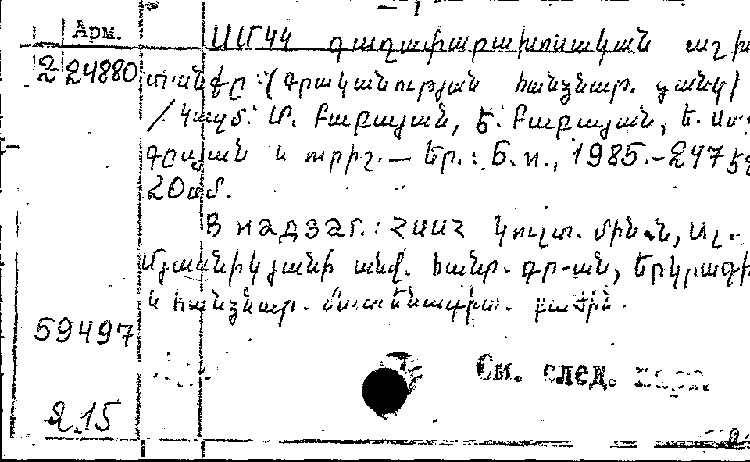 Арм.
ՍՄԿԿ գաղափարախոսական աշխ
2 24880 տանքը : (Գրականության հանձնար. ցանկ)
/ Կազմ.: Մ. Բաբայան, Ե. Բաբայան, Ե.
գրյան և ուրիշ. — Եր.: Б. и., 1985. — 247 էջ
20սմ.
В надзаг.: ՀՍՍՀ կուլտ. մին-ն, Ալ.
Մյասնիկյանի անվ. հանր. գր-ան, Երկրագի
և հանձնար. մատենագիտ. բաժին.
59497
2.15
См. след. карт.